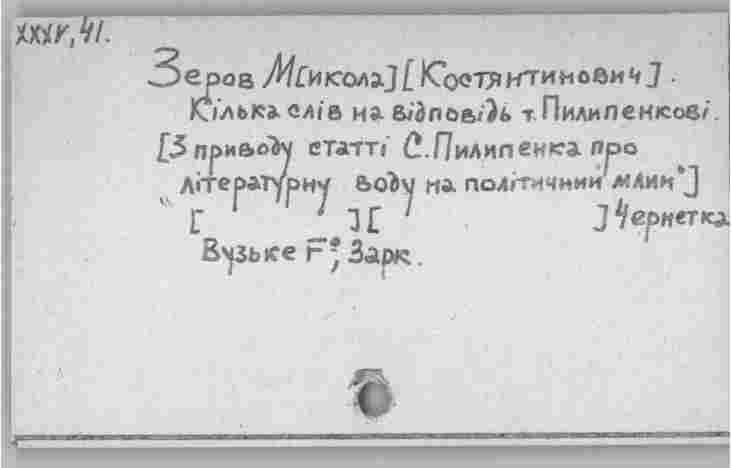 XXXV, 41.
Зеров М[икола] [Костянтинович].
Кілька слів на відповідь т. Пилипенкові.
[З приводу статті С. Пилипенка про
„літературну воду на політичний млин"]
[ ] [ ] Чернетка
Вузьке Fº, Зарк.